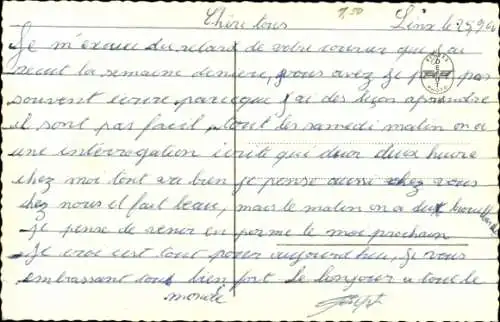 Chère tous 1,50 Linx le 25.9.60
Je m'excuse du retard de votre courier que j'ai
recut la semaine dernière, vous avez je peut pas
souvent écrire parceque j'ai des leçon aprendre
il sont pas facil, tout les samedi matin on a
une interrogation écrite qui dur deux heure
chez moi tout va bien je pense aussi chez vous
chez nous il fait beau, mais le matin on a du brouillard
je pense de venir en perme le moi prochain
Je croi c'est tout pour aujourd'hui, Je vous
embrassant tous bien fort Le bonjour a tout le
monde